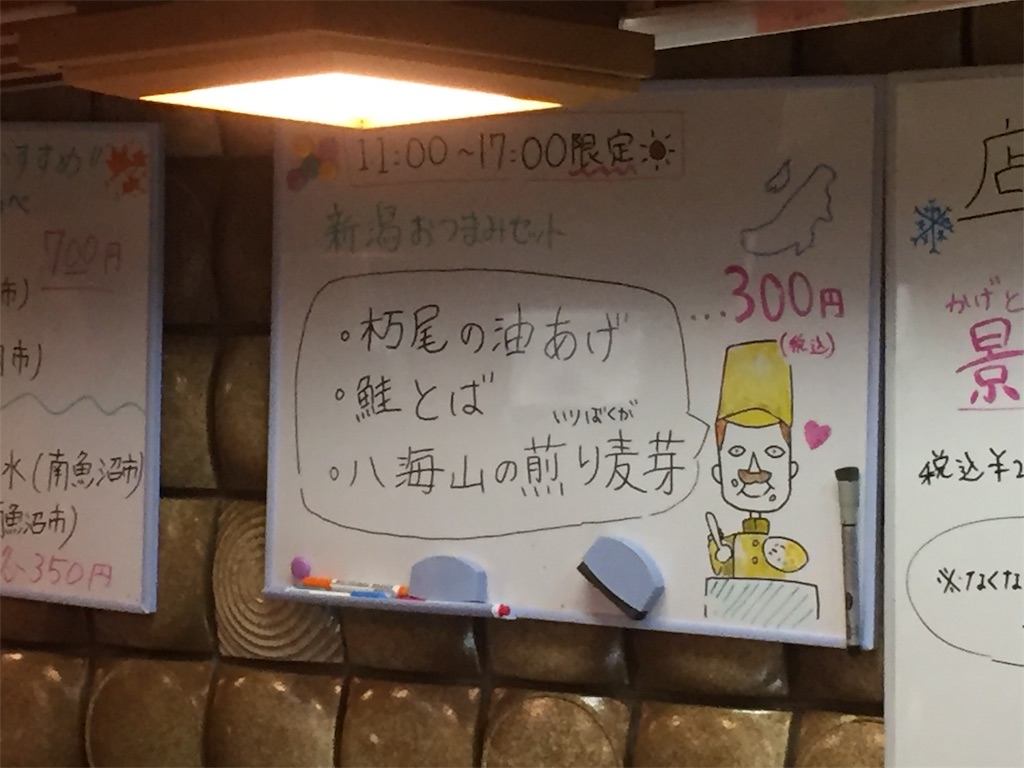 すすめ!!
700円
市)
市)
水(南魚沼市)
魚沼市)
350円
11:00~17:00限定
新潟おつまみセット
...300円
(税込)
。朽尾の油あげ
。鮭とば
いりばくが
。八海山の煎り麦芽
店
かげと
景
税込¥2
※なくな